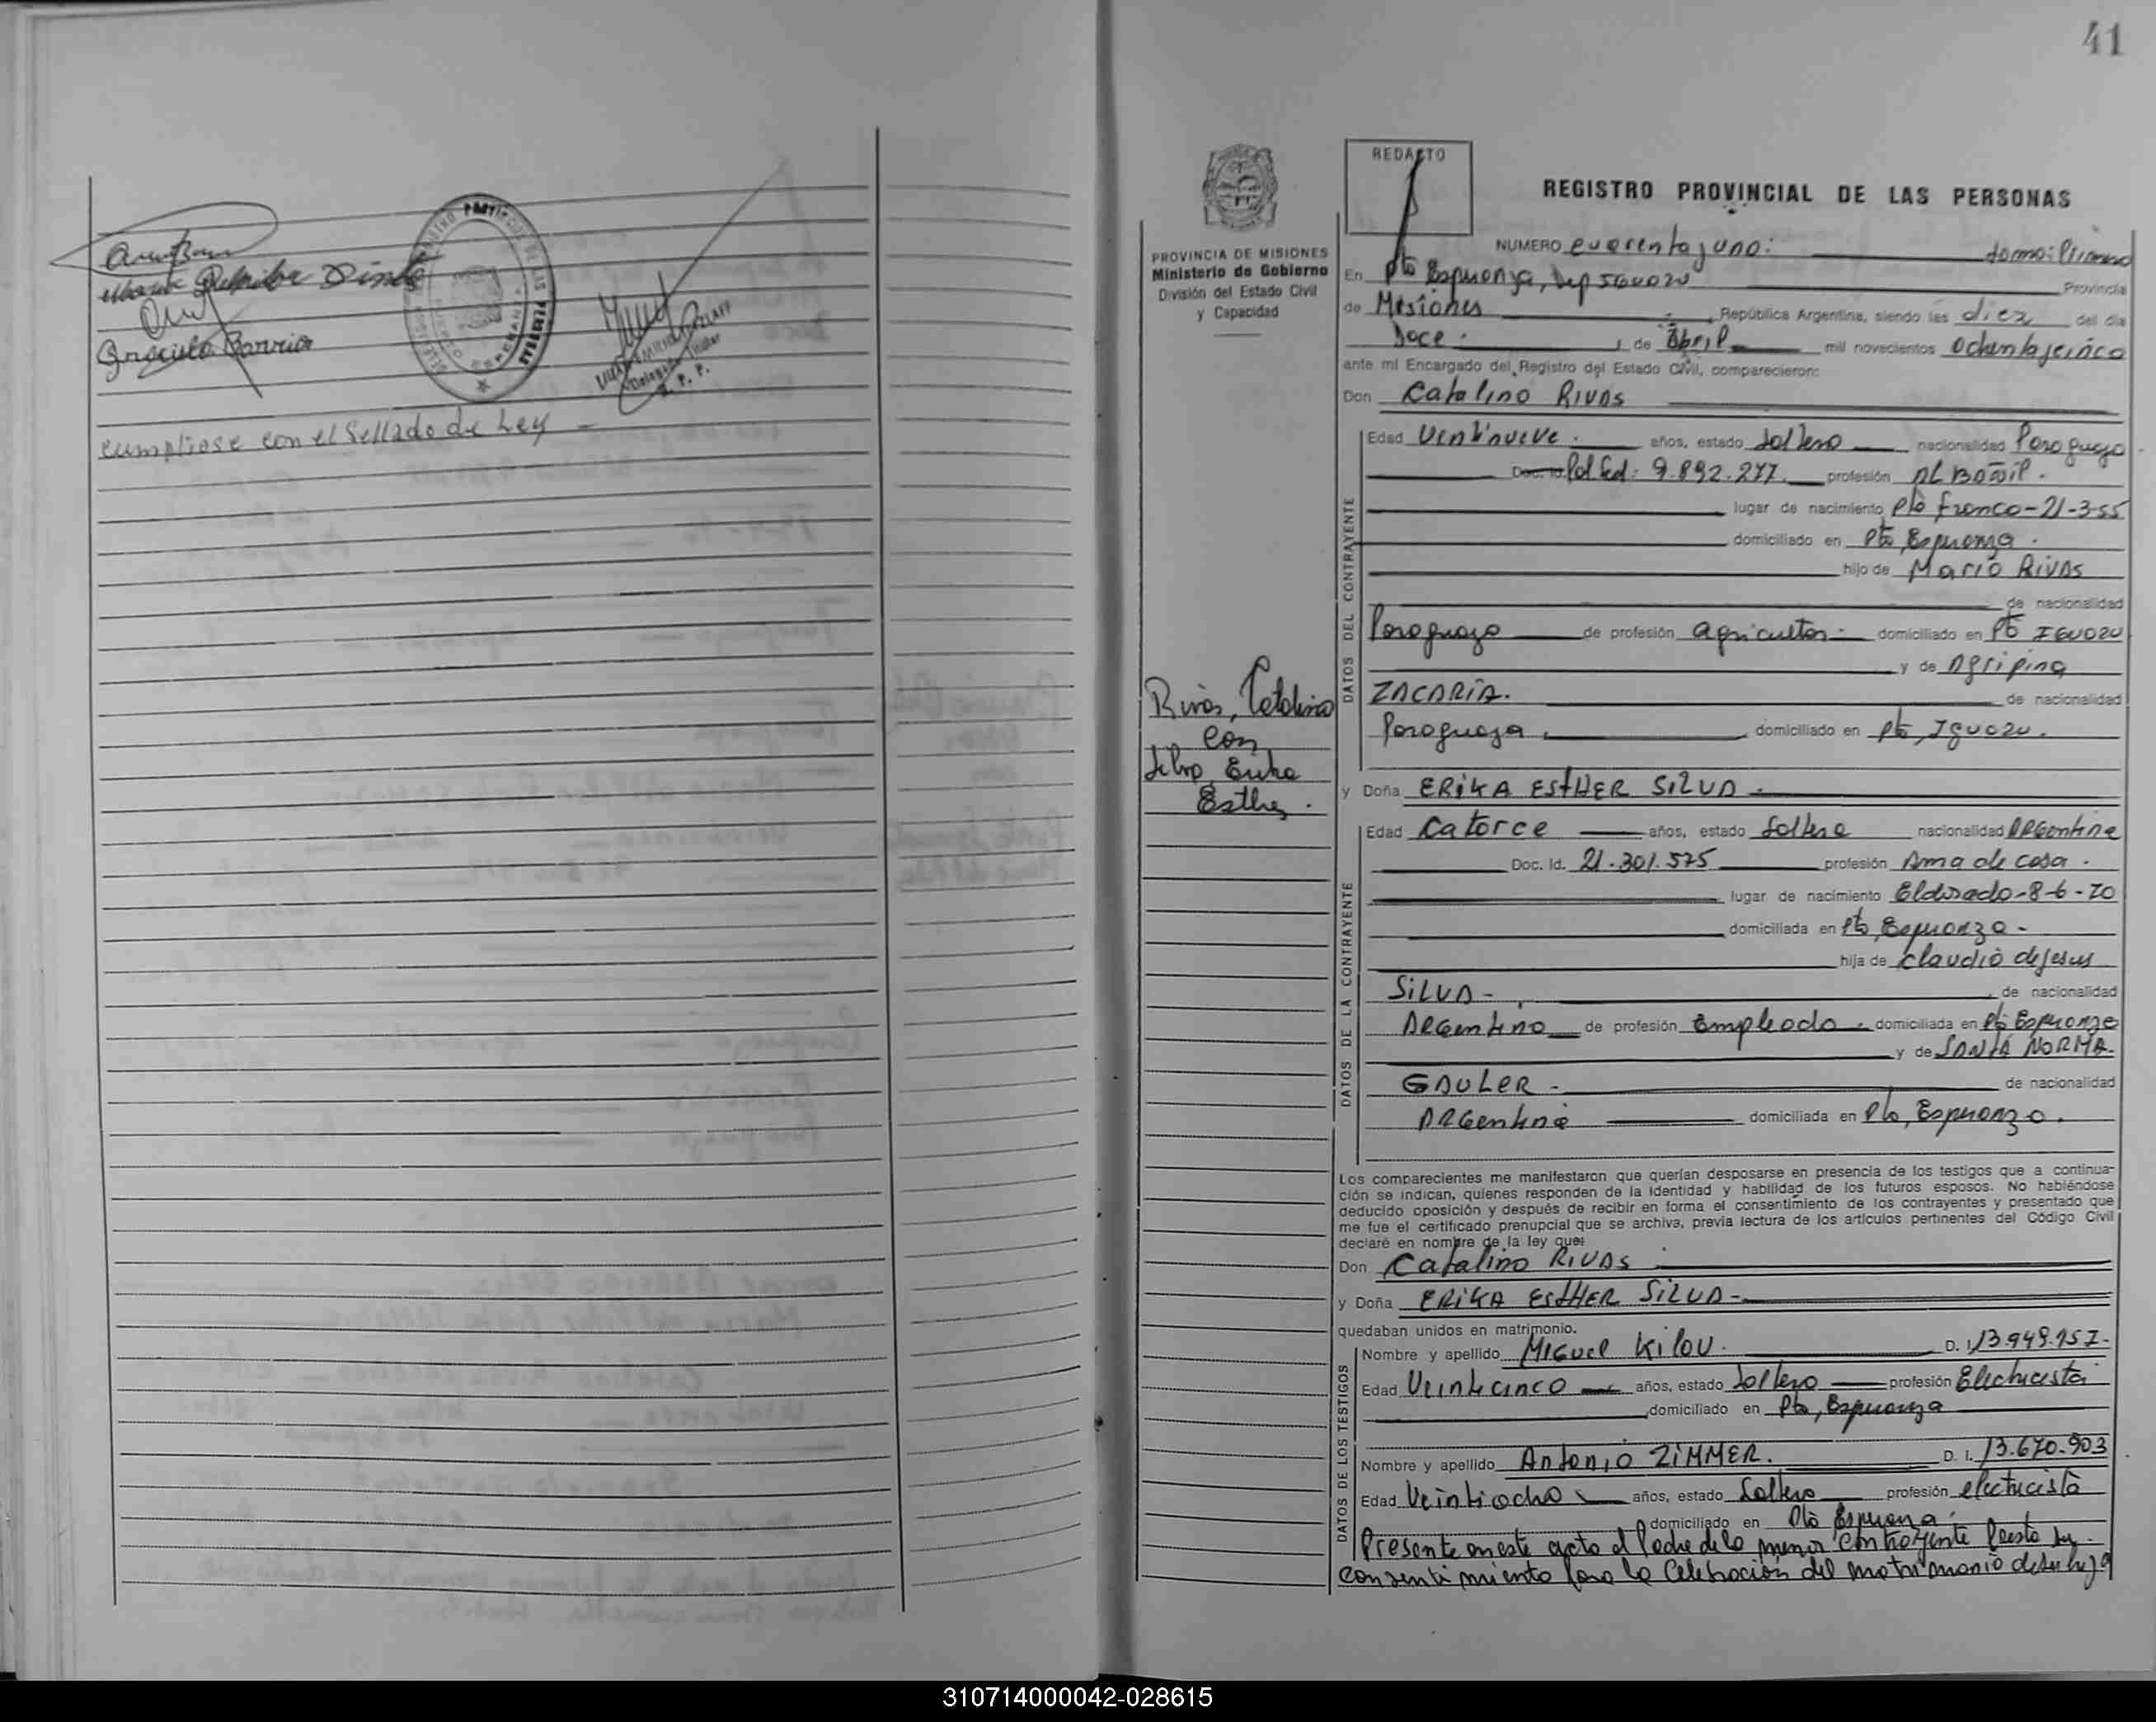 cumpliose con el Sellado de Ley
41
REDACTO
REGISTRO PROVINCIAL DE LAS PERSONAS
PROVINCIA DE MISIONES
Ministerio de Gobierno
División del Estado Civil
y Capacidad
NUMERO cuarenta y uno: tomo: Primero
En Pto Esperanza, Dep IGUAZU Provincia
de Misiones República Argentina, siendo las diez del día
Doce de Abril mil novecientos Ochenta y cinco
ante mí Encargado del Registro del Estado Civil, comparecieron:
Don Catalino RIVAS
Edad Veintinueve años, estado Soltero nacionalidad Paraguayo
Doc. Id. Pol Fed: 9.892.277 profesión ALBAÑIL.
lugar de nacimiento Pto Franco-21-3-55
domiciliado en Pto, Esperanza.
hijo de Mario RIVAS
de nacionalidad
Paraguayo de profesión agricultor domiciliado en Pto IGUAZU
y de Agripina
ZACARIA. de nacionalidad
Paraguaya domiciliado en Pto, Iguazu.
Rivas, Catalino
con
Silva, Erika
Esther.
y Doña ERIKA ESTHER SILVA
Edad Catorce años, estado Soltera nacionalidad ARGentina
Doc. Id. 21.301.575 profesión Ama de casa.
lugar de nacimiento Eldorado-8-6-70
domiciliada en Pto, Esperanza-
hija de Claudio de Jesus
SILVA- de nacionalidad
ARGentino de profesión Empleado domiciliada en Pto Esperanza
y de SANTA NORMA
GAULER- de nacionalidad
ARGentina domiciliada en Pto, Esperanza.
Los comparecientes me manifestaron que querían desposarse en presencia de los testigos que a continua-
ción se indican, quienes responden de la identidad y habilidad de los futuros esposos. No habiéndose
deducido oposición y después de recibir en forma el consentimiento de los contrayentes y presentado que
me fue el certificado prenupcial que se archiva, previa lectura de los artículos pertinentes del Código Civil
declaré en nombre de la ley que:
Don Catalino RIVAS
y Doña ERIKA ESTHER SILVA-
quedaban unidos en matrimonio.
Nombre y apellido MIGuel KILOU. D. I. 13.949.957-
Edad Veinticinco años, estado Soltero profesión Electricista
domiciliado en Pto, Esperanza
Nombre y apellido Antonio ZIMMER. D. I. 13.670.903
Edad Veintiocho años, estado Soltero profesión electricista
domiciliado en Pto Esperanza
Presente en este acto el Padre de la menor contrayente Presta su
consentimiento para la Celebración del matrimonio de su hija
DATOS DEL CONTRAYENTE
DATOS DE LA CONTRAYENTE
DATOS DE LOS TESTIGOS
310714000042-028615